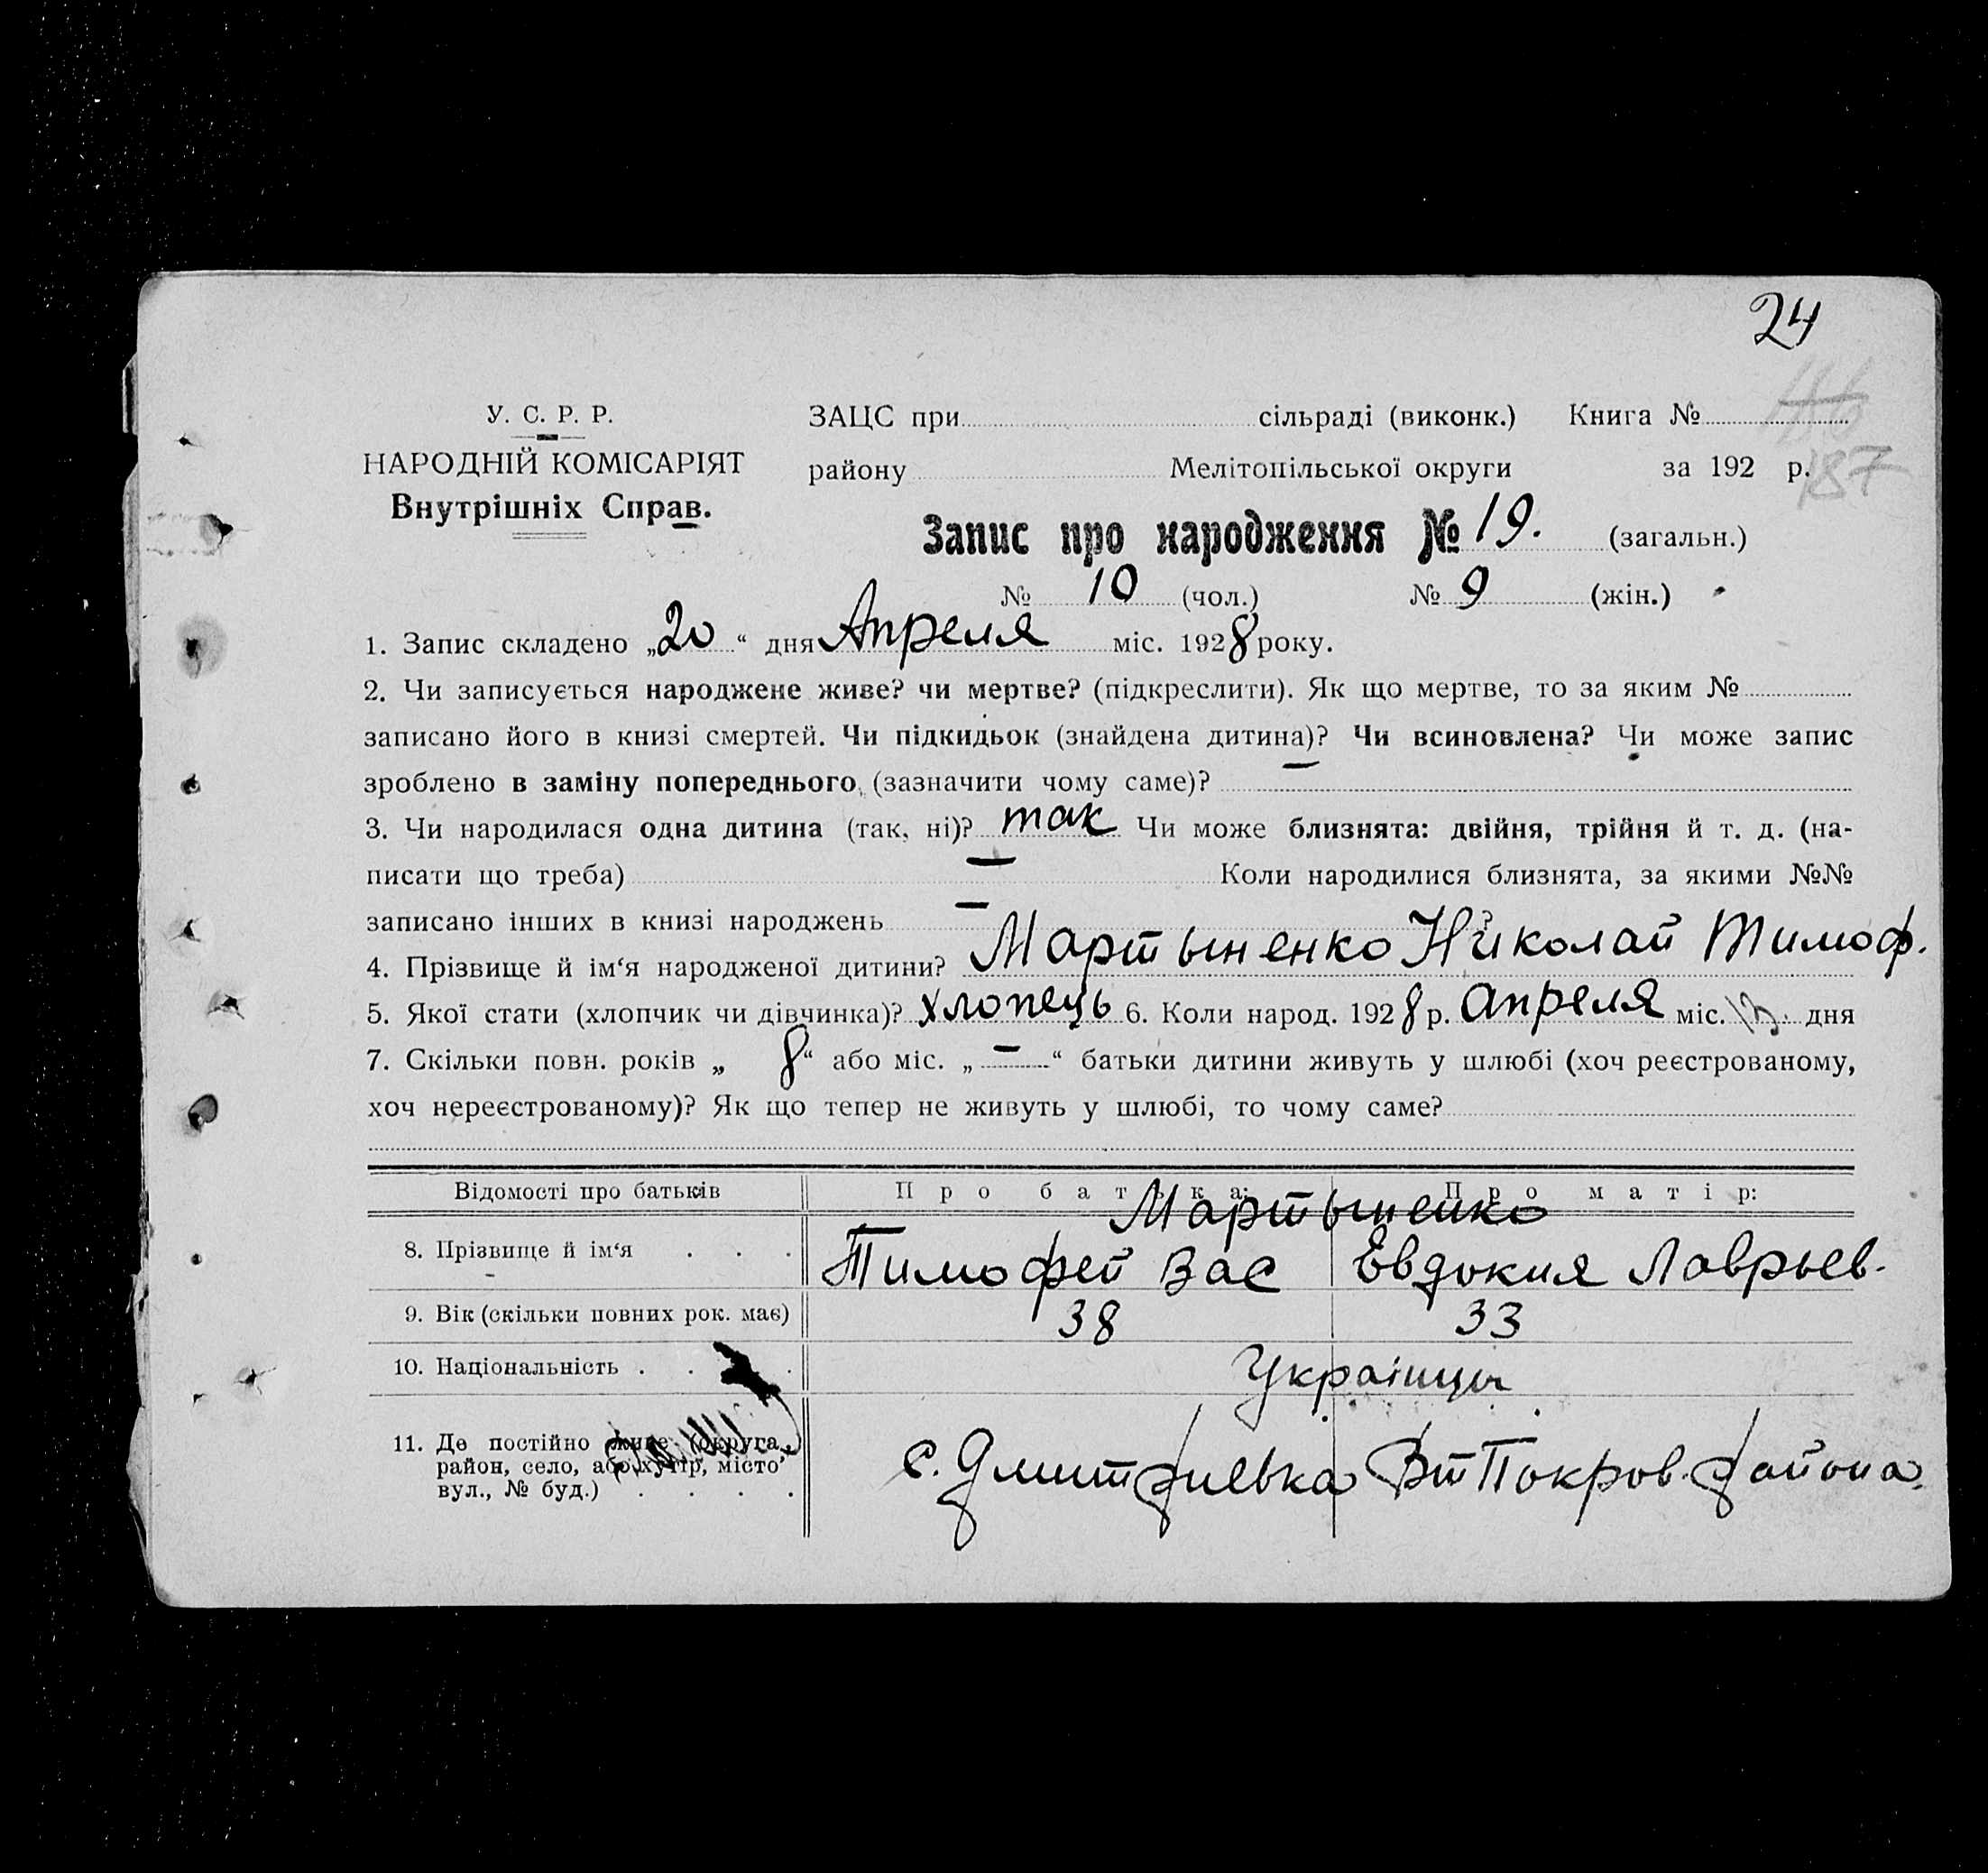 24
У. С. Р. Р.
НАРОДНІЙ КОМІСАРІЯТ
Внутрішніх Справ.
ЗАЦС при сільраді (виконк.) Книга №
району Мелітопільської округи за 192 р.
187
Запис про народження № 19. (загальн.)
№ 10 (чол.) № 9 (жін.)
1. Запис складено „20“ дня Апреля міс. 1928 року.
2. Чи записується народжене живе? чи мертве? (підкреслити). Як що мертве, то за яким №
записано його в книзі смертей. Чи підкидьок (знайдена дитина)? Чи всиновлена? Чи може запис
зроблено в заміну попереднього, (зазначити чому саме)? —
3. Чи народилася одна дитина (так, ні)? так Чи може близнята: двійня, трійня й т. д. (на-
писати що треба) — Коли народилися близнята, за якими №№
записано інших в книзі народжень —
4. Прізвище й ім‘я народженої дитини? Мартыненко Николай Тимоф.
5. Якої стати (хлопчик чи дівчинка)? хлопець 6. Коли народ. 1928 р. апреля міс. 13. дня
7. Скільки повн. років „ 8“ або міс. „—“ батьки дитини живуть у шлюбі (хоч реєстрованому,
хоч нереєстрованому)? Як що тепер не живуть у шлюбі, то чому саме?
Відомості про батьків Про батька: Про матір:
Мартыненко
8. Прізвище й ім‘я . . . Тимофей Вас Евдокия Лаврьев.
9. Вік (скільки повних рок. має) 38 33
10. Національність . . . Українцы
11. Де постійно живе (округа, с. Дмитриевка Вт Покров. района.
район, село, або хутір, місто
вул., № буд.) . . . .